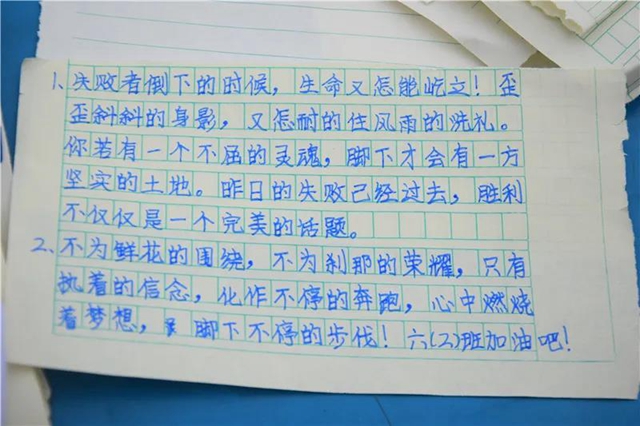 1、失败者倒下的时候，生命又怎能屹立！歪
歪斜斜的身影，又怎耐的住风雨的洗礼。
你若有一个不屈的灵魂，脚下才会有一方
坚实的土地。昨日的失败已经过去，胜利
不仅仅是一个完美的话题。
2、不为鲜花的围绕，不为刹那的荣耀，只有
执着的信念，化作不停的奔跑，心中燃烧
着梦想，脚下不停的步伐！六(2)班加油吧！